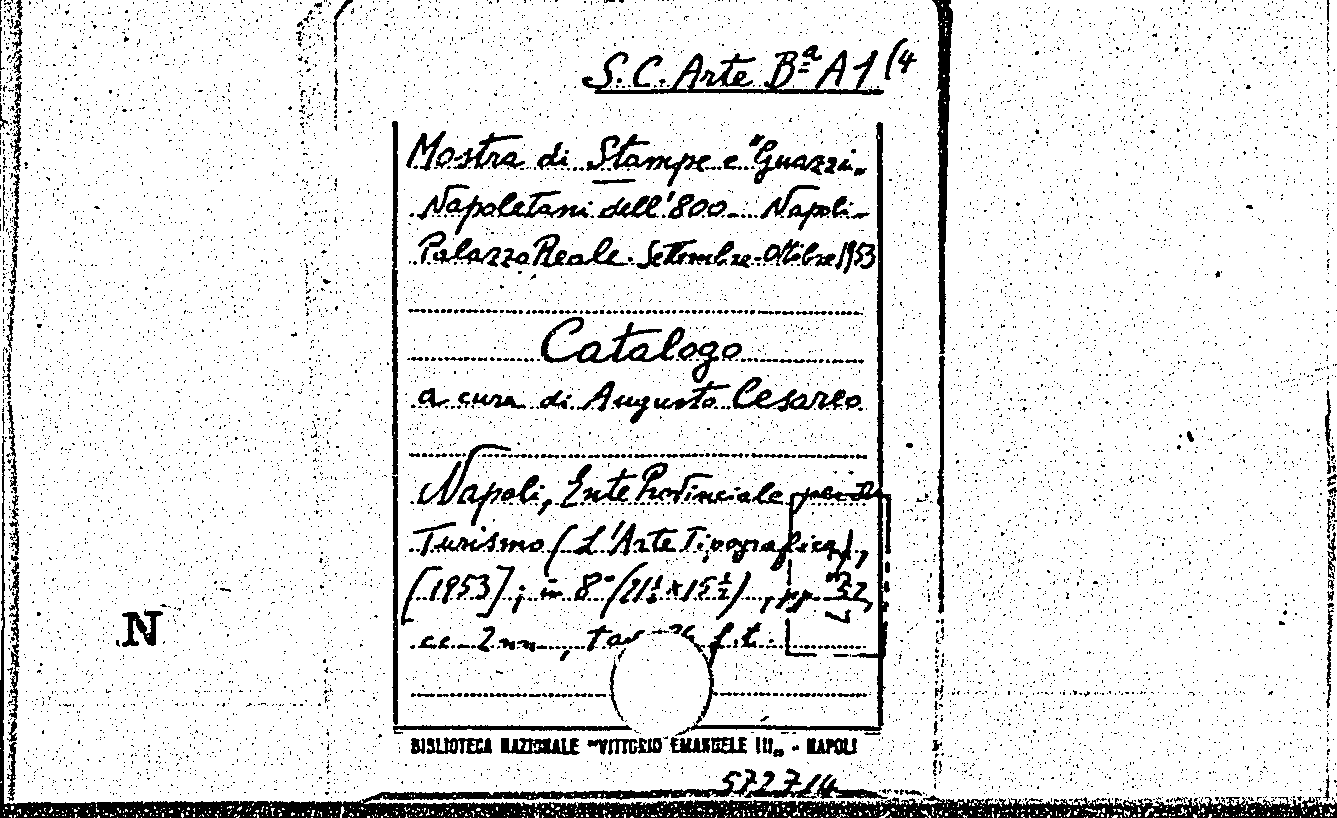 S. C. Arte Bª A 1 (4
Mostra di Stampe e "Guazzi„
Napoletani dell'800 - Napoli -
Palazzo Reale - Settembre - Ottobre 1953
Catalogo
a cura di Augusto Cesareo
Napoli, Ente Provinciale per il
Turismo (L'Arte Tipografica),
[1953]; in 8° (21½ x 15½), pp. 32,
cc. 2 nn., f.t.
N
BIBLIOTECA NAZIONALE "VITTORIO EMANUELE III„ - NAPOLI
572714